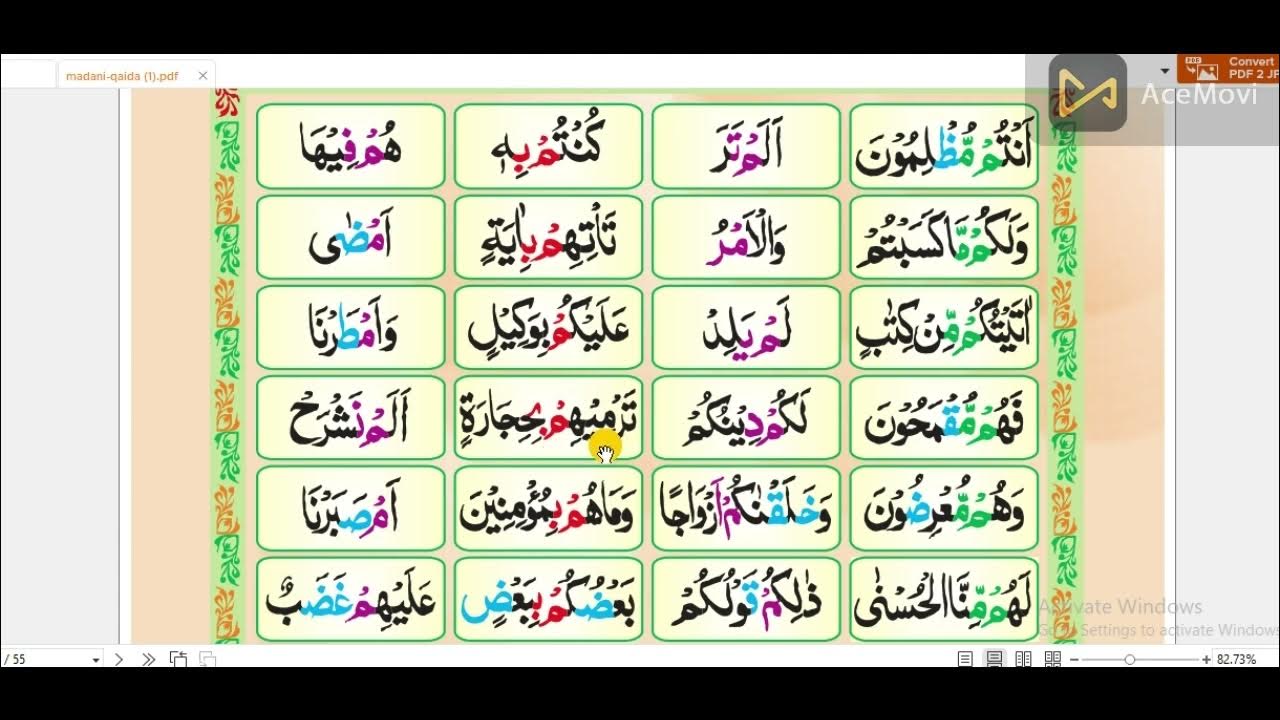 madani-qaida (1).pdf
Convert
PDF 2 JP
AceMovi
اَنْتُمْ مُّظْلِمُوْنَ اَلَمْ تَرَ كُنْتُمْ بِهٖ هُمْ فِيْهَا
وَلَكُمْ مَّا كَسَبْتُمْ وَالْاَمْرُ تَاْتِهِمْ بِاٰيَةٍ اَمْضٰى
اٰتَيْتُكُمْ مِّنْ كِتٰبٍ لَمْ يَلِدْ عَلَيْكُمْ بِوَكِيْلٍ وَاَمْطَرْنَا
فَهُمْ مُّقْمَحُوْنَ لَكُمْ دِيْنُكُمْ تَرْمِيْهِمْ بِحِجَارَةٍ اَلَمْ نَشْرَحْ
وَهُمْ مُّعْرِضُوْنَ وَخَلَقْنٰكُمْ اَزْوَاجًا وَمَا هُمْ بِمُؤْمِنِيْنَ اَمْ صَبَرْنَا
لَهُمْ مِّنَّا الْحُسْنٰى ذٰلِكُمْ قَوْلُكُمْ بَعْضُكُمْ بِبَعْضٍ عَلَيْهِمْ غَضَبٌ
Activate Windows
Go to Settings to activate Windows
/ 55
82.73%